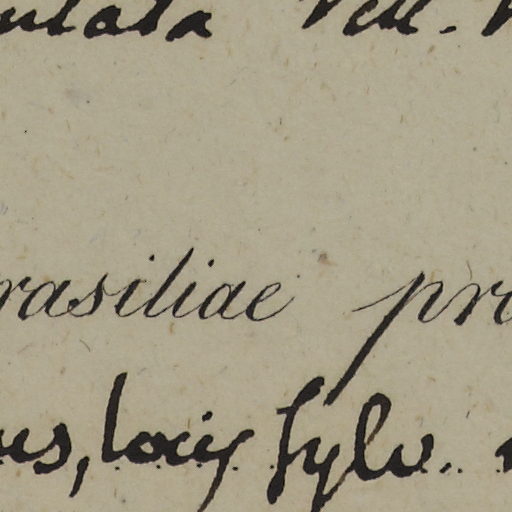 ulata Vell.
rasiliae pro
us, locis sylv.